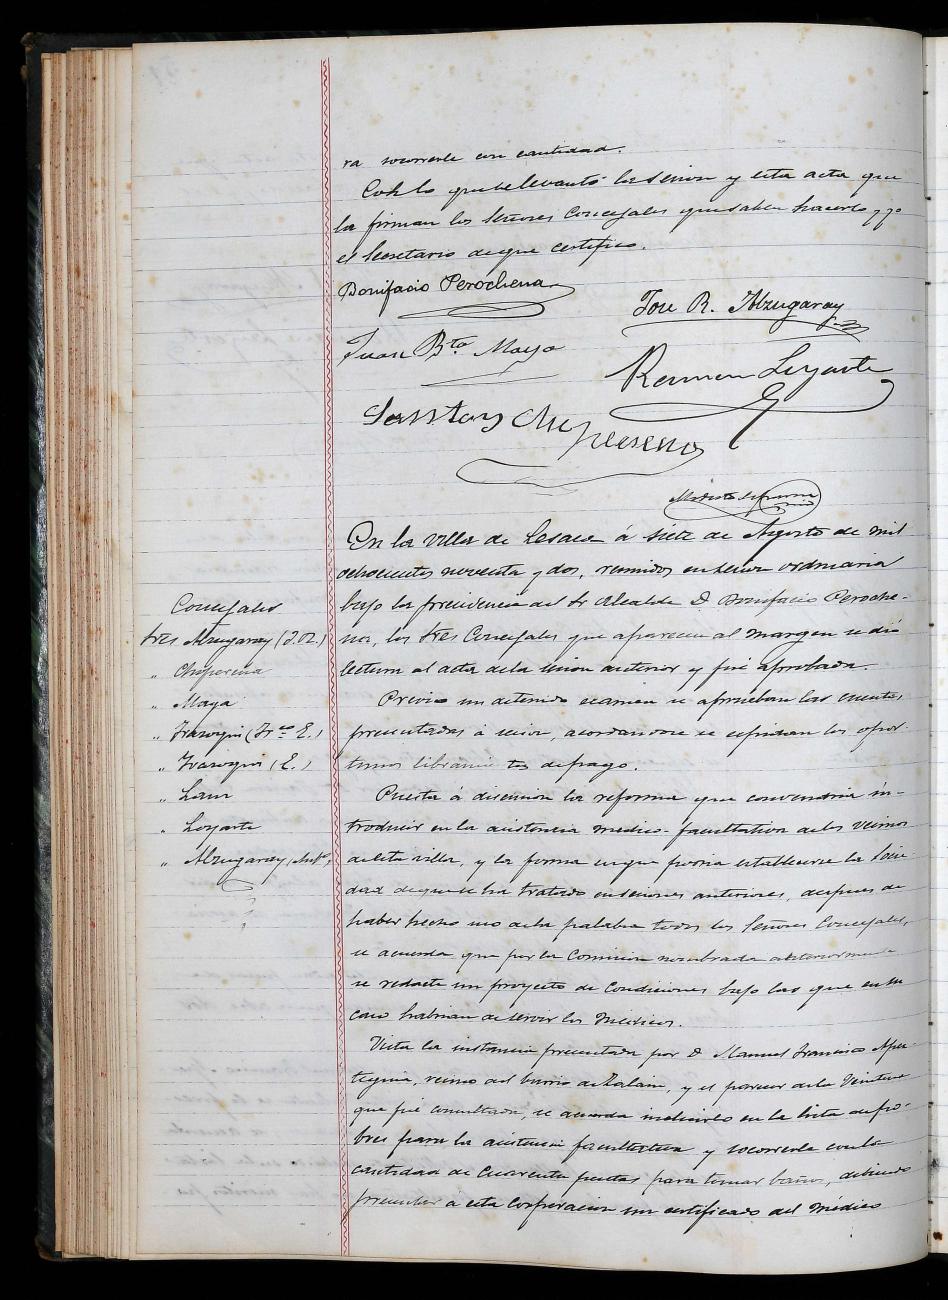 ra socorrerle con cantidad.
Con lo que se levantó la sesion y esta acta que
la firman los Señores Concejales que saben hacerlo, y yo
el Secretario de que certifico.
Bonifacio Perochena
Jose R. Alzugaray
Juan Bta Maya
Ramon Loyarte
Santos Chipeerena
Modesto
En la villa de Lesaca á siete de Agosto de mil
ochocientos noventa y dos, reunidos en sesion ordinaria
bajo la presidencia del Sr Alcalde D. Bonifacio Peroche-
na, los Sres Concejales que aparecen al margen se dió
lectura al acta de la sesion anterior y fué aprobada.
Concejales
Sres Alzugaray (J. R.)
" Chipereña
" Maya
" Irazoqui (Fr.co E.)
" Irazoqui (E.)
" Lanz
" Loyarte
" Alzugaray
Previo un detenido examen se aprueban las cuentas
presentadas á sesion, acordandose se espidan los opor-
tunos libramientos de pago.
Puesta á discusion la reforma que convendria in-
troducir en la asistencia medico-facultativa de los vecinos
de esta villa, y la forma en que podria establecerse la Socie-
dad de que se ha tratado en sesiones anteriores, despues de
haber hecho uso de la palabra todos los Señores Concejales,
se acuerda que por la Comision nombrada anteriormente
se redacte un proyecto de condiciones bajo las que en su
caso habrian de servir los Medicos.
Vista la instancia presentada por D. Manuel Francisco Aper-
teguia, vecino del barrio de Zalain, y el parecer de la Veintena
que fué consultada, se acuerda incluirlo en la lista de po-
bres para la asistencia facultativa y socorrerle con la
cantidad de Cuarenta pesetas para tomar baños, debiendo
presentar a esta Corporacion un certificado del Médico